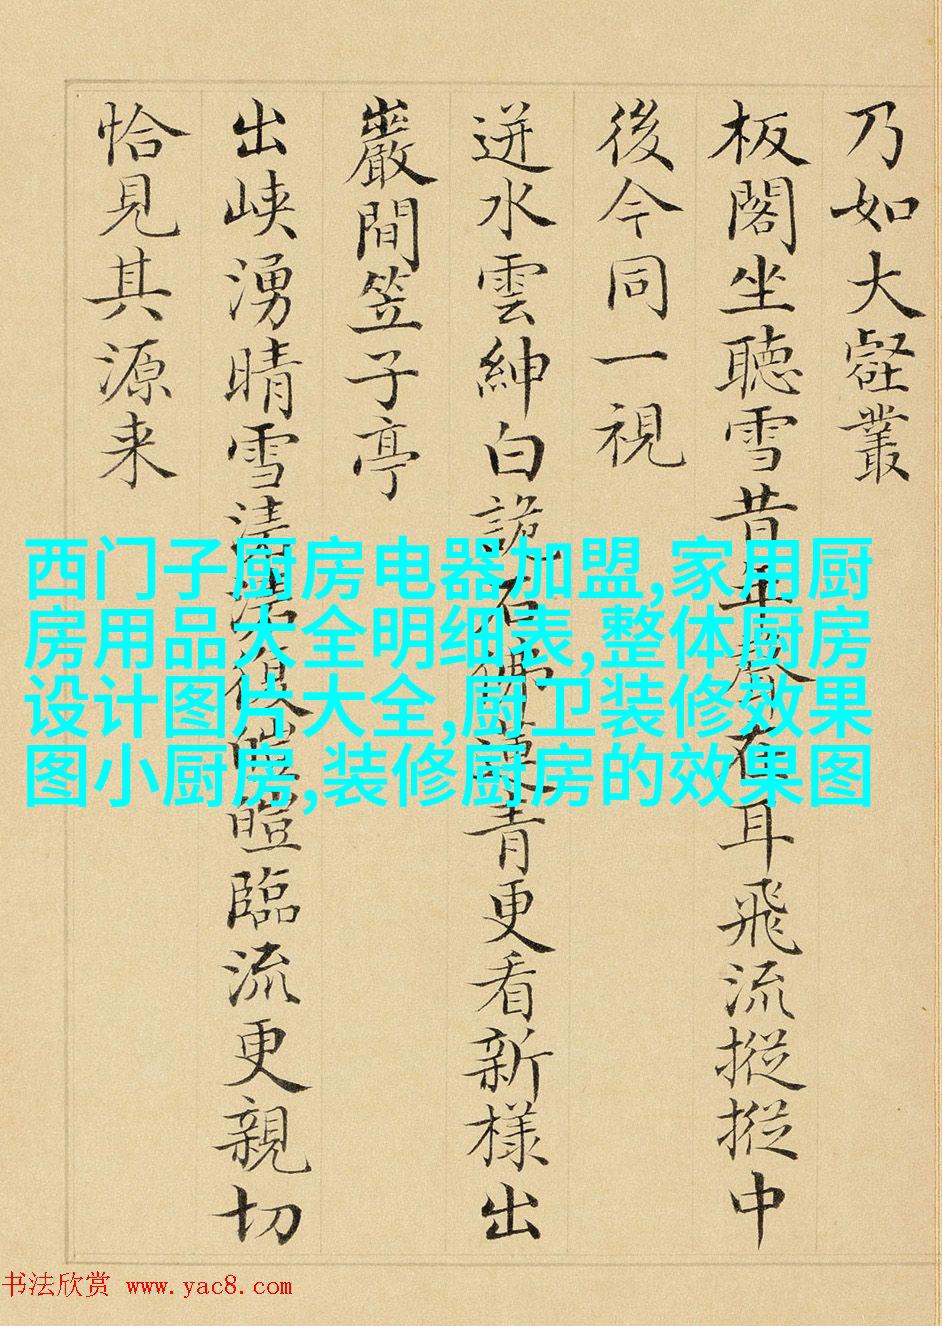 乃如大壑叢
板閣坐聽雪昔年在耳飛流摐摐中
後今同一視
迸水雲紳白詭石佛青更看新樣出
巖間笠子亭
出峽湧晴雪皚臨流更親切
恰見其源来
西门子厨房电器加盟,家用厨
房用品大全明细表,整体厨房
设计图片大全,厨卫装修效果
图小厨房,装修厨房的效果图
书法欣赏 www.yac8.com